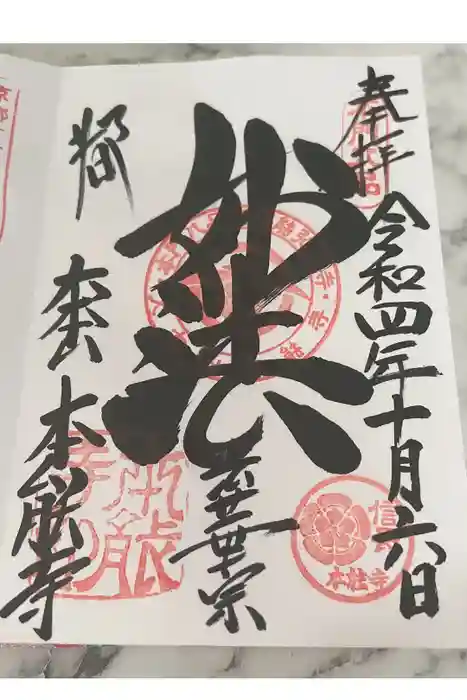 奉拝
令和四年十月六日
妙法
法華宗
都
大本山
本能寺